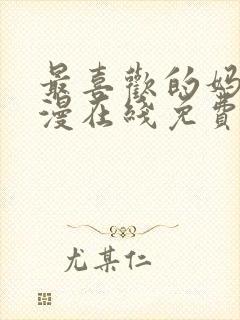 最喜歡的妈
漫在綫免費
尤某仁